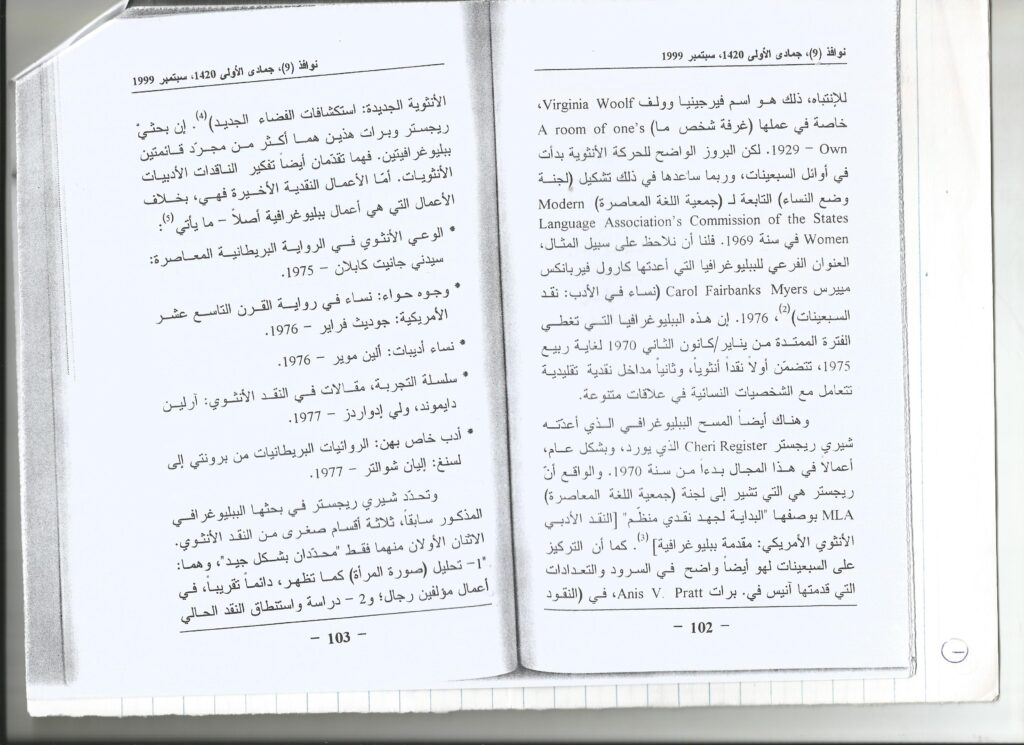 نوافذ (9)، جمادى الأولى 1420، سبتمبر 1999
للإنتباه، ذلك هو اسم فيرجينيا وولف Virginia Woolf،
خاصة في عملها (غرفة شخص ما) A room of one's
Own – 1929. لكن البروز الواضح للحركة الأنثوية بدأت
في أوائل السبعينات، وربما ساعدها في ذلك تشكيل (لجنة
وضع النساء) التابعة لـ (جمعية اللغة المعاصرة) Modern
Language Association's Commission of the States
Women في سنة 1969. فلنا أن نلاحظ على سبيل المثال،
العنوان الفرعي للببليوغرافيا التي أعدتها كارول فيربانكس
مييرس Carol Fairbanks Myers (نساء في الأدب: نقد
السبعينات)(2)، 1976. إن هذه الببليوغرافيا التي تغطي
الفترة الممتدة من يناير/كانون الثاني 1970 لغاية ربيع
1975، تتضمّن أولاً نقداً أنثوياً، وثانياً مداخل نقدية تقليدية
تتعامل مع الشخصيات النسائية في علاقات متنوعة.
وهناك أيضاً المسح الببليوغرافي الذي أعدّته
شيري ريجستر Cheri Register الذي يورد، وبشكل عام،
أعمالا في هذا المجال بدءاً من سنة 1970. والواقع أنّ
ريجستر هي التي تشير إلى لجنة (جمعية اللغة المعاصرة)
MLA بوصفها "البداية لجهد نقدي منظّم" [النقد الأدبي
الأنثوي الأمريكي: مقدمة ببليوغرافية](3). كما أن التركيز
على السبعينات لهو أيضاً واضح في السرود والتعدادات
التي قدمتها آنيس في. برات Anis V. Pratt، في (النقود
– 102 –
نوافذ (9)، جمادى الأولى 1420، سبتمبر 1999
الأنثوية الجديدة: استكشافات الفضاء الجديد)(4). إن بحثيّ
ريجستر وبرات هذين هما أكثر من مجرّد قائمتين
ببليوغرافيتين. فهما تقدّمان أيضاً تفكير الناقدات الأدبيات
الأنثويات. أمّا الأعمال النقدية الأخيرة فهي، بخلاف
الأعمال التي هي أعمال ببليوغرافية أصلاً – ما يأتي(5):
* الوعي الأنثوي في الرواية البريطانية المعاصرة:
سيدني جانيت كابلان – 1975.
* وجوه حواء: نساء في رواية القرن التاسع عشر
الأمريكية: جوديث فراير – 1976.
* نساء أديبات: ألين موير – 1976.
* سلسلة التجربة، مقالات في النقد الأنثوي: آرلين
دايموند، ولي إدواردز – 1977.
* أدب خاص بهن: الروائيات البريطانيات من برونتي إلى
لسنغ: إليان شوالتر – 1977.
وتحدّد شيري ريجستر في بحثها الببليوغرافي
المذكور سابقاً، ثلاثة أقسام صغرى من النقد الأنثوي.
الاثنان الأولان منهما فقط "محدّدان بشكل جيد"، وهما:
"1– تحليل (صورة المرأة) كما تظهر، دائماً تقريباً، في
أعمال مؤلفين رجال؛ و2 – دراسة واستنطاق النقد الحالي
– 103 –